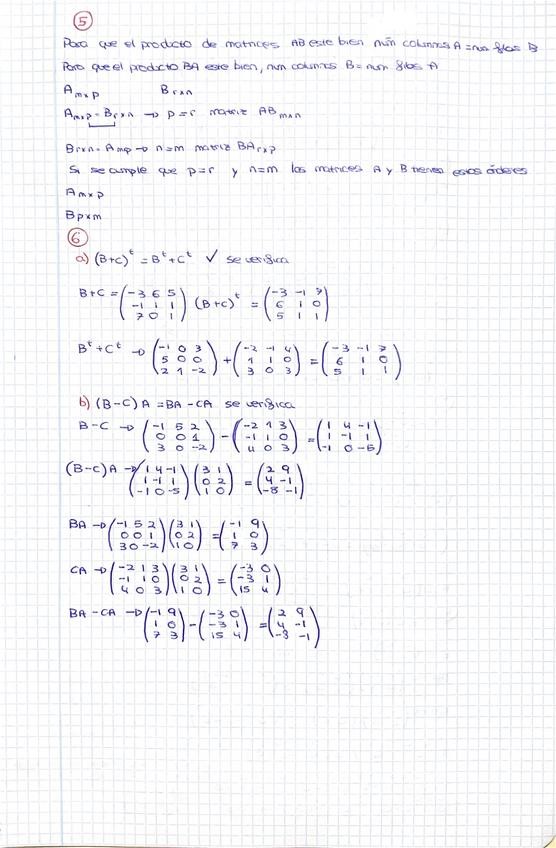 5
Para que el producto de matrices AB este bien núm columnas A = num filas B
Para que el producto BA este bien, num columnas B = num filas A
A m×p B r×n
A m×p · B r×n → p = r matriz AB m×n
B r×n · A m×p → n = m matriz BA r×p
Si se cumple que p = r y n = m las matrices A y B tienen estos órdenes
A m×p
B p×m
6
a) (B+C)^t = B^t + C^t ✓ se verifica
B+C = (-3 6 5 / -1 1 1 / 7 0 1) (B+C)^t = (-3 -1 7 / 6 1 0 / 5 1 1)
B^t + C^t → (-1 0 3 / 5 0 0 / 2 1 -2) + (-2 -1 4 / 1 1 0 / 3 0 3) = (-3 -1 7 / 6 1 0 / 5 1 1)
b) (B-C) A = BA - CA se verifica
B-C → (-1 5 2 / 0 0 1 / 3 0 -2) - (-2 1 3 / -1 1 0 / 4 0 3) = (1 4 -1 / 1 -1 1 / -1 0 -5)
(B-C) A → (1 4 -1 / 1 -1 1 / -1 0 -5) (3 1 / 0 2 / 1 0) = (2 9 / 4 -1 / -8 -1)
BA → (-1 5 2 / 0 0 1 / 3 0 -2) (3 1 / 0 2 / 1 0) = (-1 9 / 1 0 / 7 3)
CA → (-2 1 3 / -1 1 0 / 4 0 3) (3 1 / 0 2 / 1 0) = (-3 0 / -3 1 / 15 4)
BA - CA → (-1 9 / 1 0 / 7 3) - (-3 0 / -3 1 / 15 4) = (2 9 / 4 -1 / -8 -1)